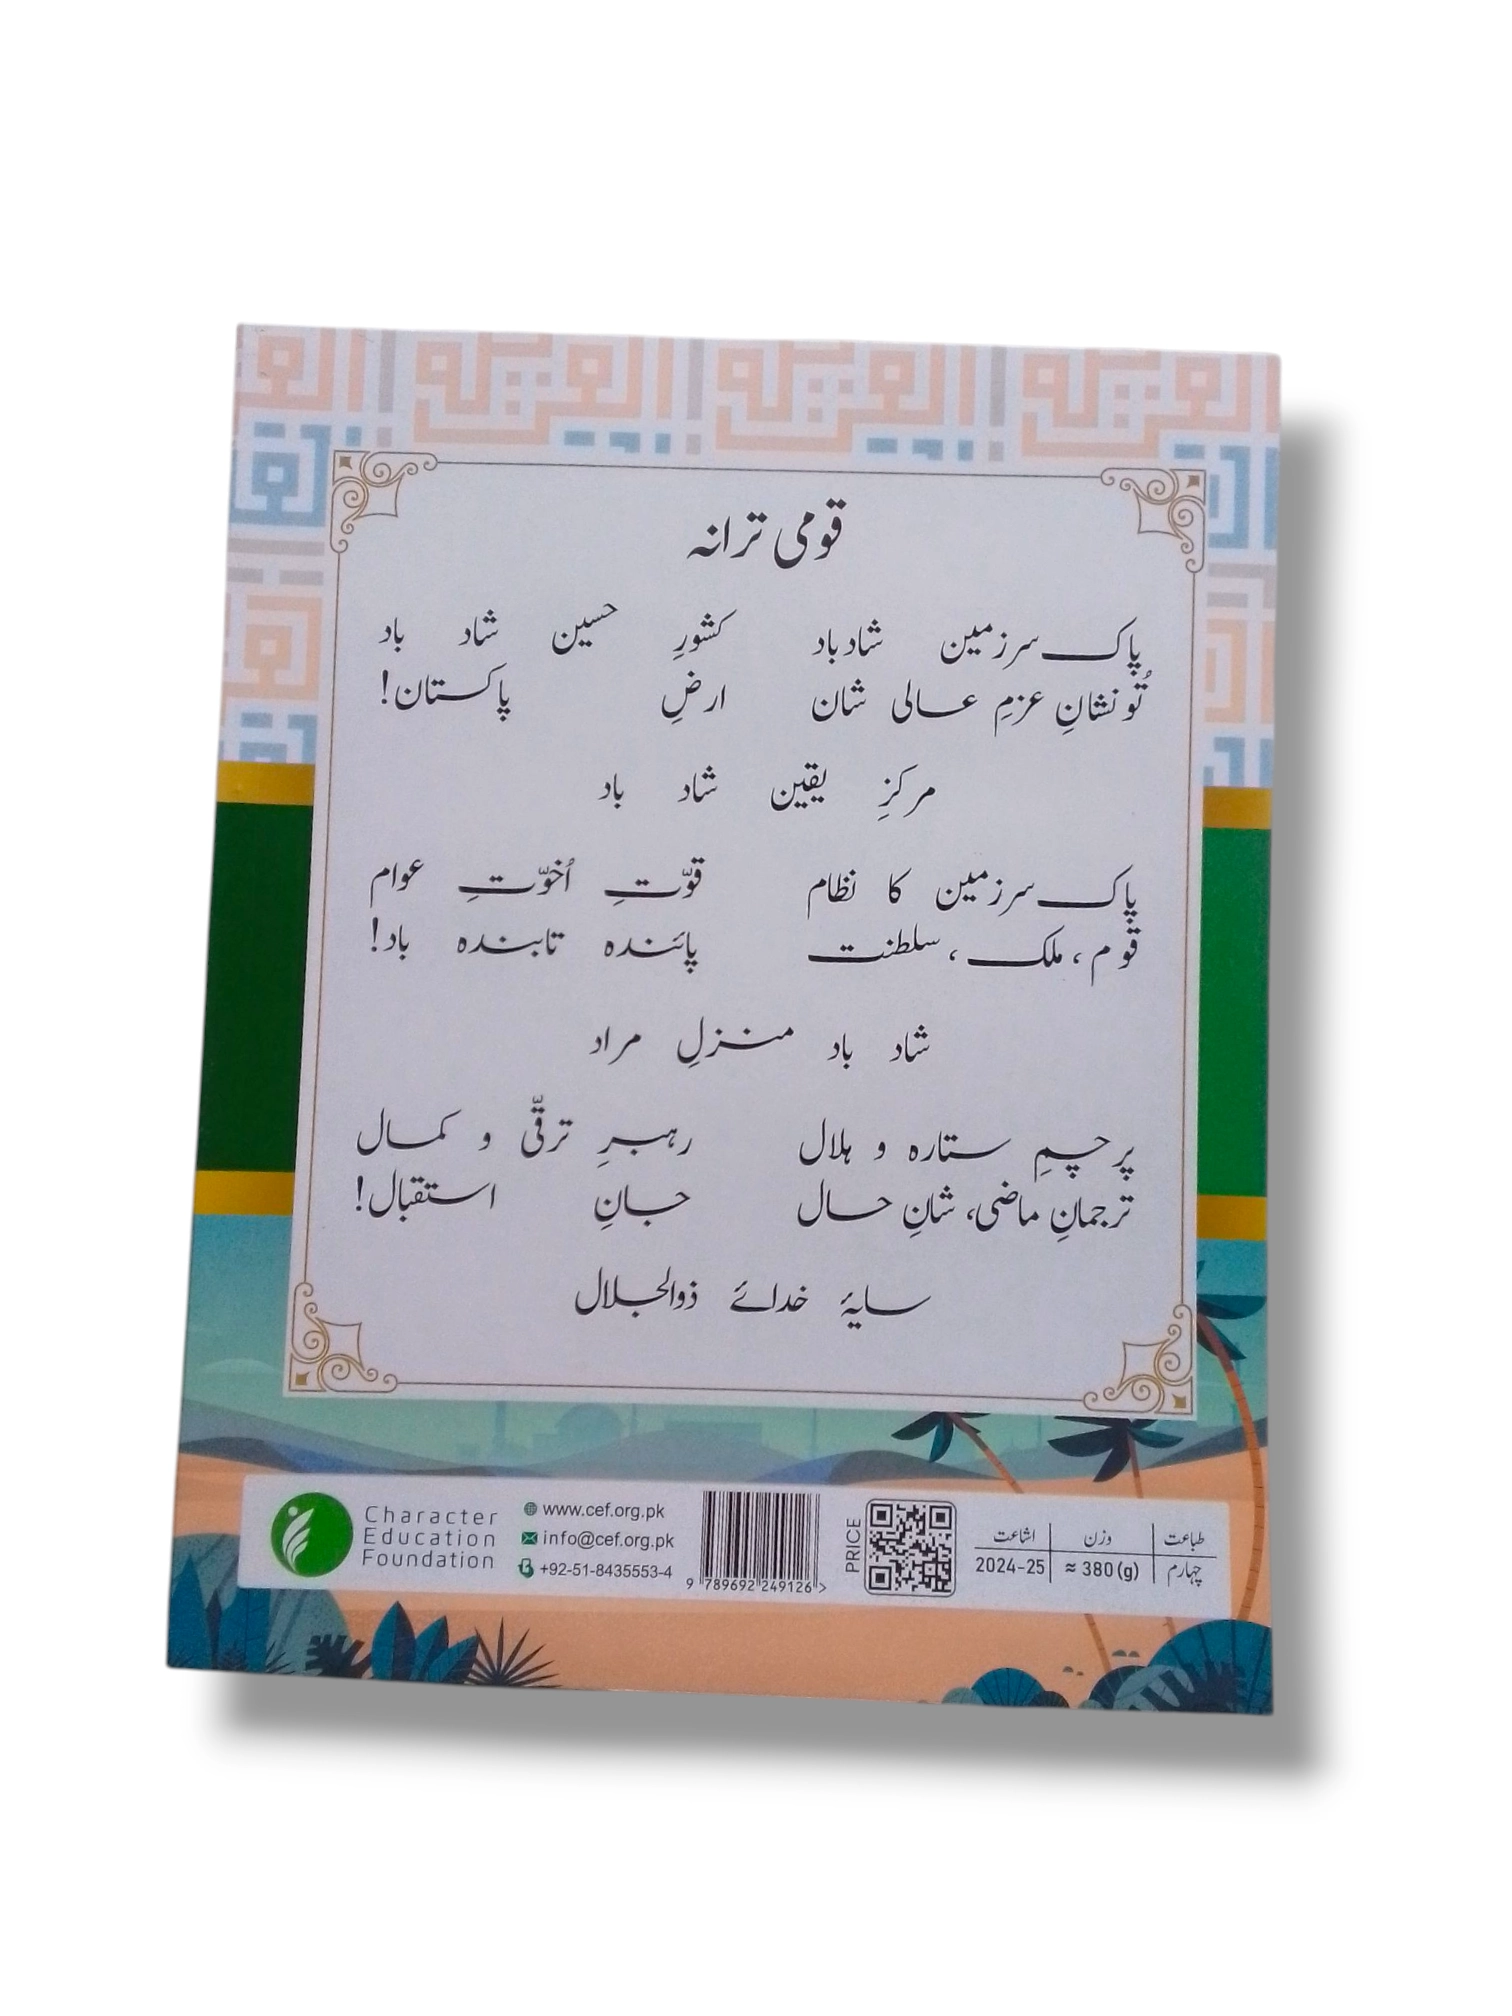 قومی ترانہ
پاک سرزمین شاد باد کشورِ حسین شاد باد
تُو نشانِ عزمِ عالی شان ارضِ پاکستان!
مرکزِ یقین شاد باد
پاک سرزمین کا نظام قوّتِ اُخوّتِ عوام
قوم، ملک، سلطنت پائندہ تابندہ باد!
شاد باد منزلِ مراد
پرچمِ ستارہ و ہلال رہبرِ ترقّی و کمال
ترجمانِ ماضی، شانِ حال جانِ استقبال!
سایۂ خدائے ذوالجلال
Character
Education
Foundation
www.cef.org.pk
info@cef.org.pk
+92-51-8435553-4
9 789692 249126 >
PRICE
طباعت وزن اشاعت
چہارم ≈ 380 (g) 2024-25